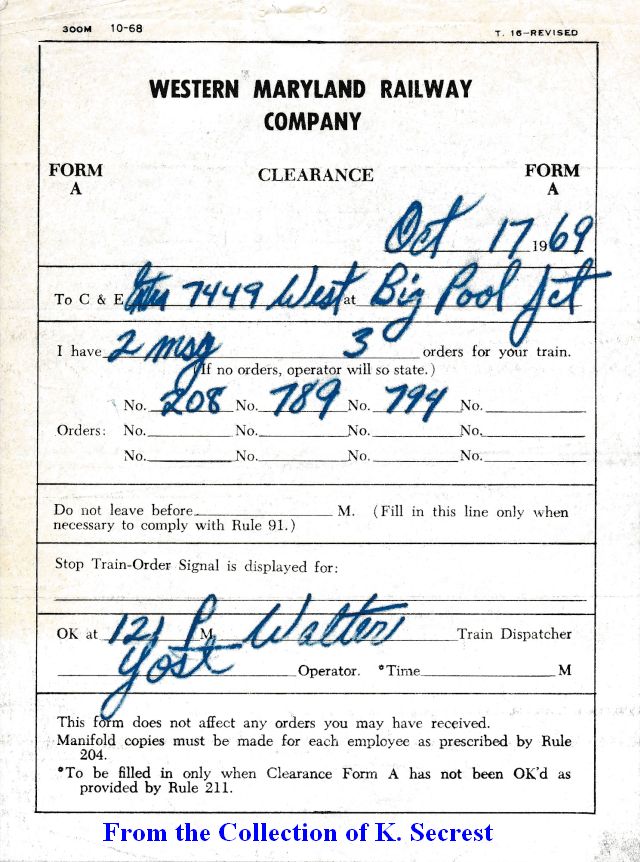 300M 10-68 T. 16-REVISED
WESTERN MARYLAND RAILWAY
COMPANY
FORM A CLEARANCE FORM A
Oct 17 1969
To C & E Extra 7449 West at Big Pool Jct
I have 2 msg 3 orders for your train.
(If no orders, operator will so state.)
No. 208 No. 789 No. 794 No.
Orders: No. No. No. No.
No. No. No. No.
Do not leave before M. (Fill in this line only when
necessary to comply with Rule 91.)
Stop Train-Order Signal is displayed for:
OK at 121 P M Walter Train Dispatcher
Yost Operator. *Time M
This form does not affect any orders you may have received.
Manifold copies must be made for each employee as prescribed by Rule
204.
*To be filled in only when Clearance Form A has not been OK'd as
provided by Rule 211.
From the Collection of K. Secrest